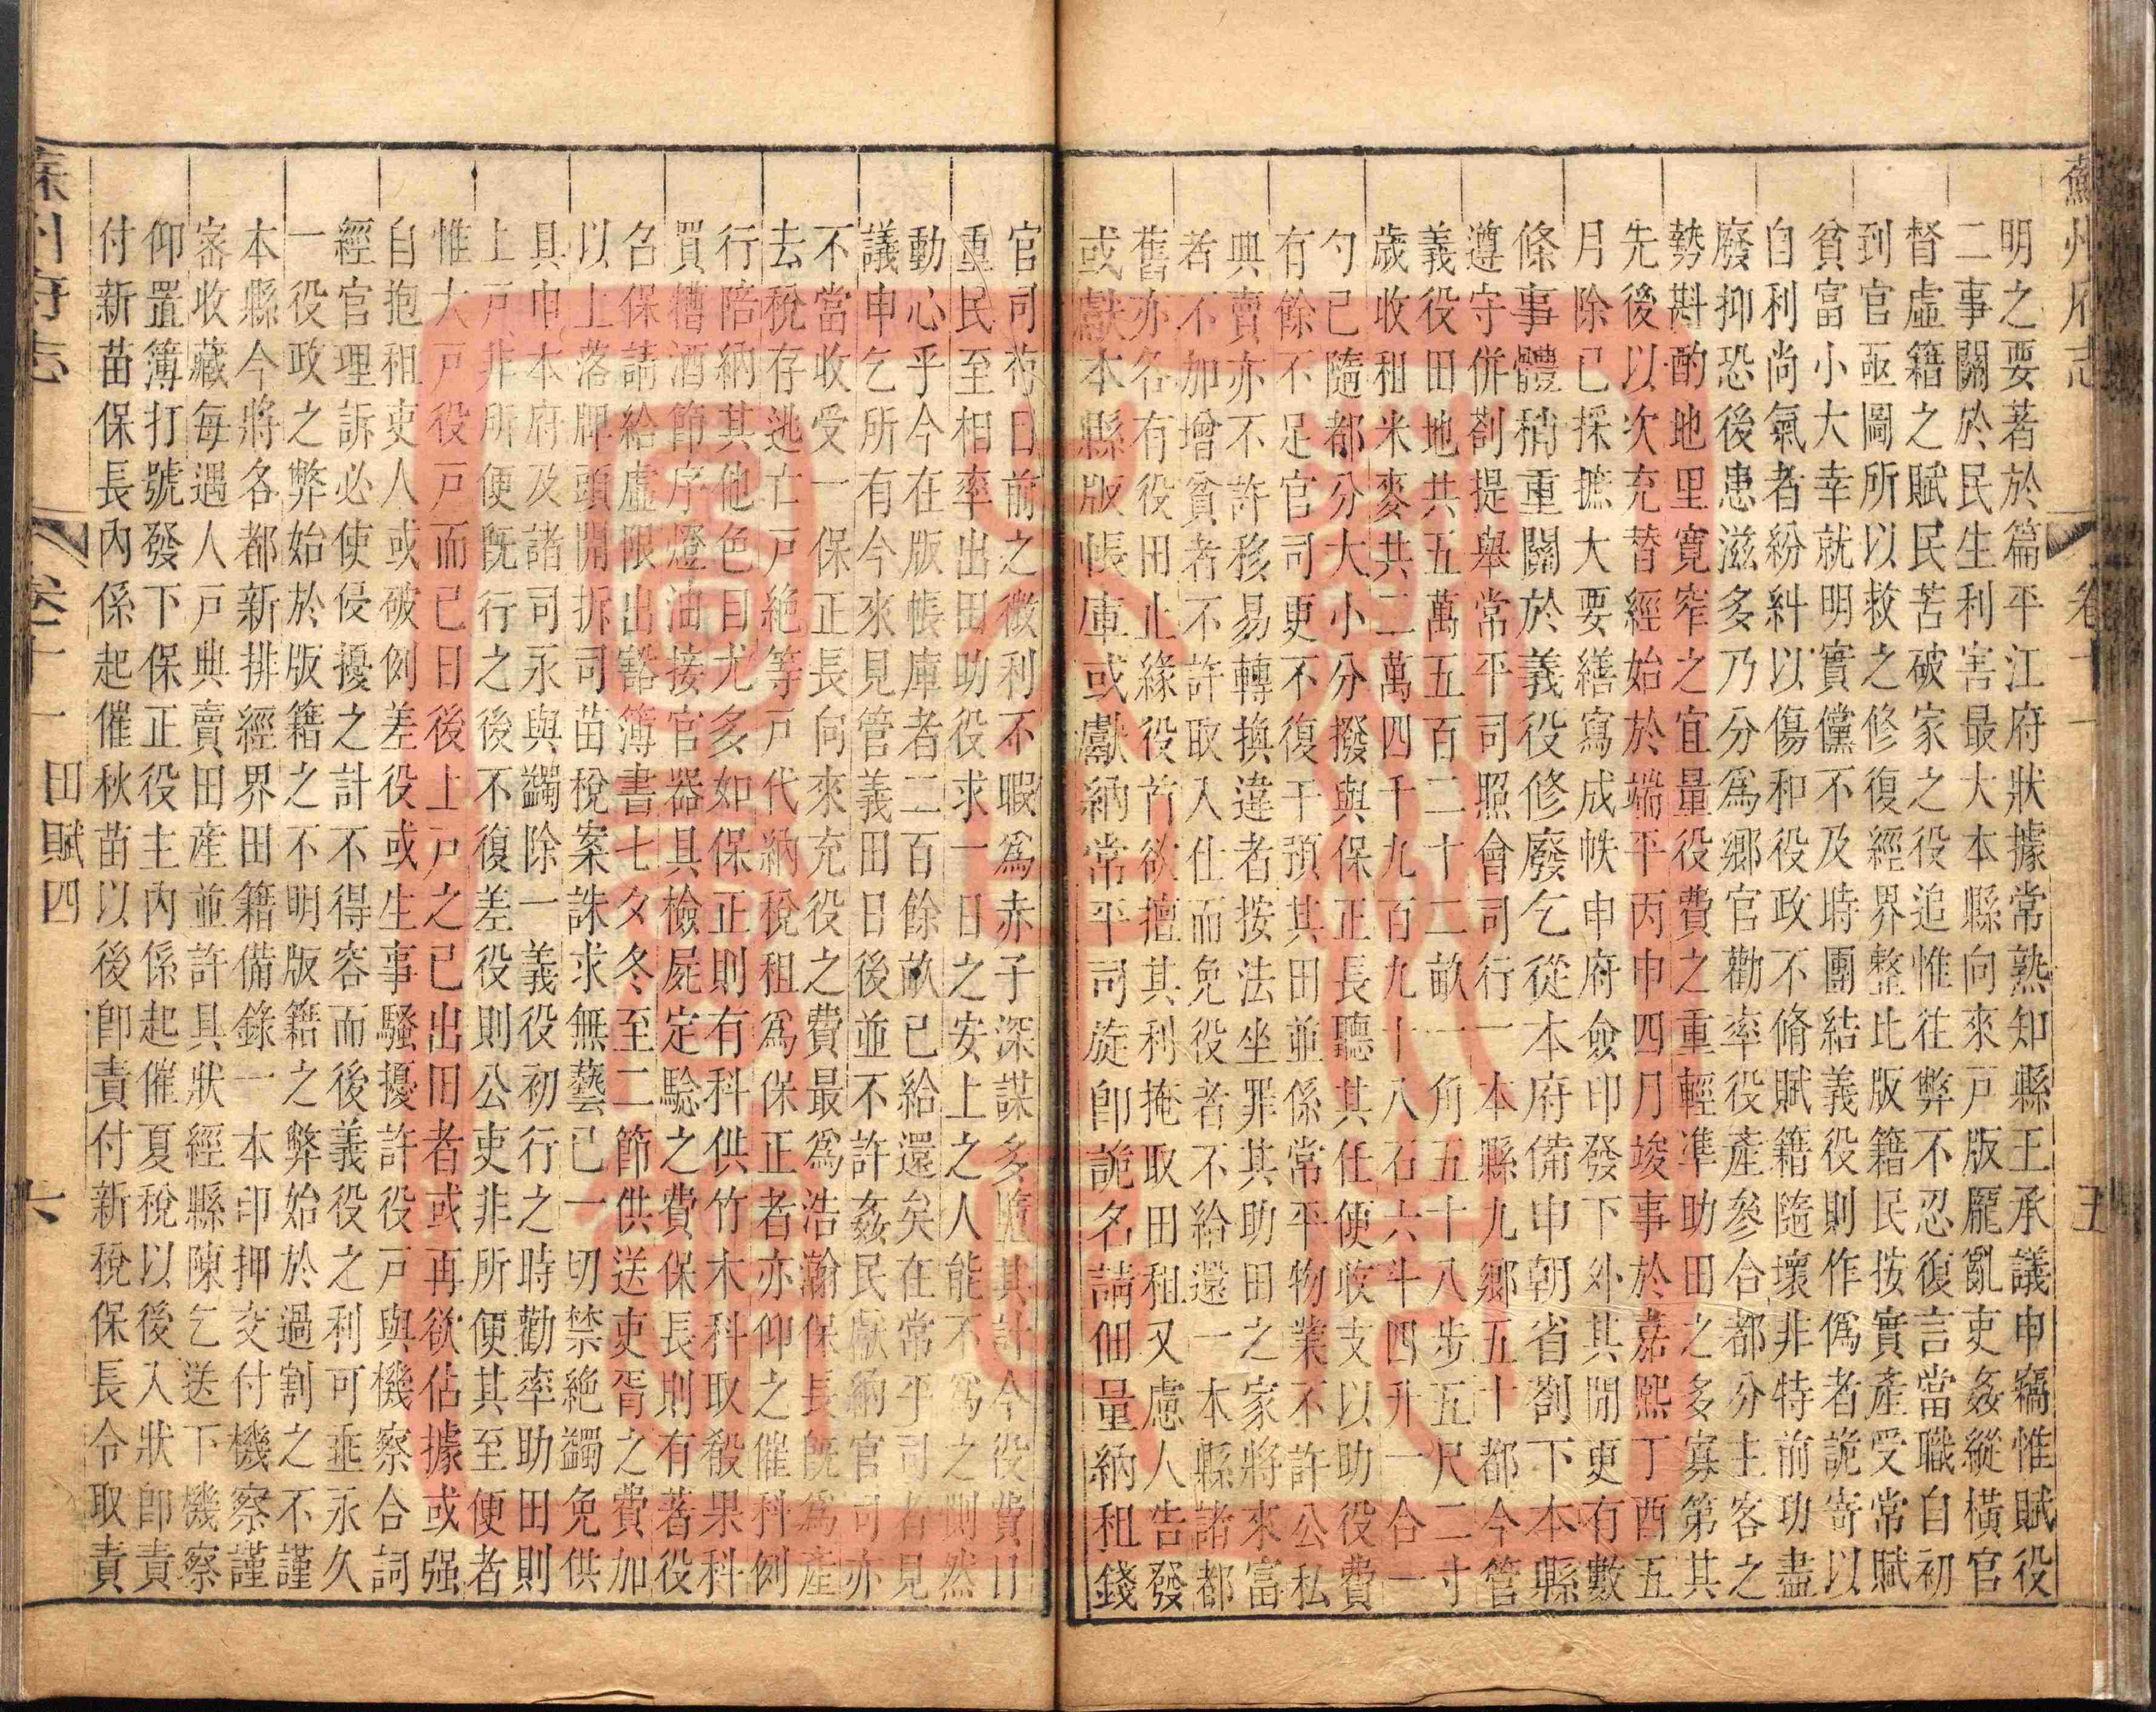 蘇州府志 卷十一 五
明之要著於篇平江府狀據常熟知縣王承議申竊惟賦役
二事關於民生利害最大本縣向來戶版龎亂吏姦縱橫官
督虛籍之賦民苦破家之役追惟徃弊不忍復言當職自初
到官亟圖所以救之修復經界整比版籍民按實產受常賦
貧富小大幸就明實儻不及時團結義役則作僞者詭寄以
自利尚氣者紛糾以傷和役政不脩賦籍隨壞非特前功盡
廢抑恐後患滋多乃分爲鄉官勸率役產參合都分主客之
勢斟酌地里寬窄之宜量役費之重輕凖助田之多寡第其
先後以次充替經始於端平丙申四月竣事於嘉熙丁酉五
月除已採摭大要繕寫成帙申府僉印發下外其閒更有數
條事體稍重關於義役修廢乞從本府備申朝省劄下本縣
遵守併劄提舉常平司照會司行一本縣九鄉五十都今管
義役田地共五萬五百二十二畝一角五十八步五尺二寸
歲收租米麥共二萬四千九百九十八石六斗四升一合一
勺已隨都分大小分撥與保正長聽其任便收支以助役費
有餘不足官司更不復干預其田並係常平物業不許公私
典賣亦不許移易轉換違者按法坐罪其助田之家將來富
者不加增貧者不許取入仕而免役者不給還一本縣諸都
舊亦名有役田止緣役首欲擅其利掩取田租又慮人告發
或獻本縣版帳庫或獻納常平司旋卽詭名請佃量納租錢
官司苟目前之微利不暇爲赤子深謀多墮其計今役費日
重民至相率出田助役求一日之安上之人能不爲之惻然
動心乎今在版帳庫者二百餘畝已給還矣在常平司者見
議申乞所有今來見管義田日後並不許姦民獻納官司亦
不當收受一保正長向來充役之費最爲浩瀚保長旣爲產
去稅存逃亡戶絕等戶代納稅租爲保正者亦仰之催科例
行陪納其他色目尤多如保正則有科供竹木科取殽果科
買糟酒節序燈油接官器具檢屍定驗之費保長則有著役
名保請給虛限出豁簿書七夕冬至二節供送吏胥之費加
以上落牌頭開拆司苗稅案誅求無藝已一切禁絕蠲免供
具申本府及諸司永與蠲除一義役初行之時勸率助田則
上戶非所便旣行之後不復差役則公吏非所便其至便者
惟大戶役戶而已日後上戶之已出田者或再欲佔據或强
自抱租吏人或破例差役或生事騷擾許役戶與機察合詞
經官理訴必使侵擾之計不得容而後義役之利可垂永久
一役政之弊始於版籍之不明版籍之弊始於過割之不謹
本縣今將各都新排經界田籍備錄一本印押交付機察謹
審收藏每遇人戶典賣田產並許具狀經縣陳乞送下機察
仰置簿打號發下保正役主內係起催夏稅以後入狀卽責
付新苗保長內係起催秋苗以後卽責付新稅保長令取責
蘇州府志 卷十一 田賦四 六